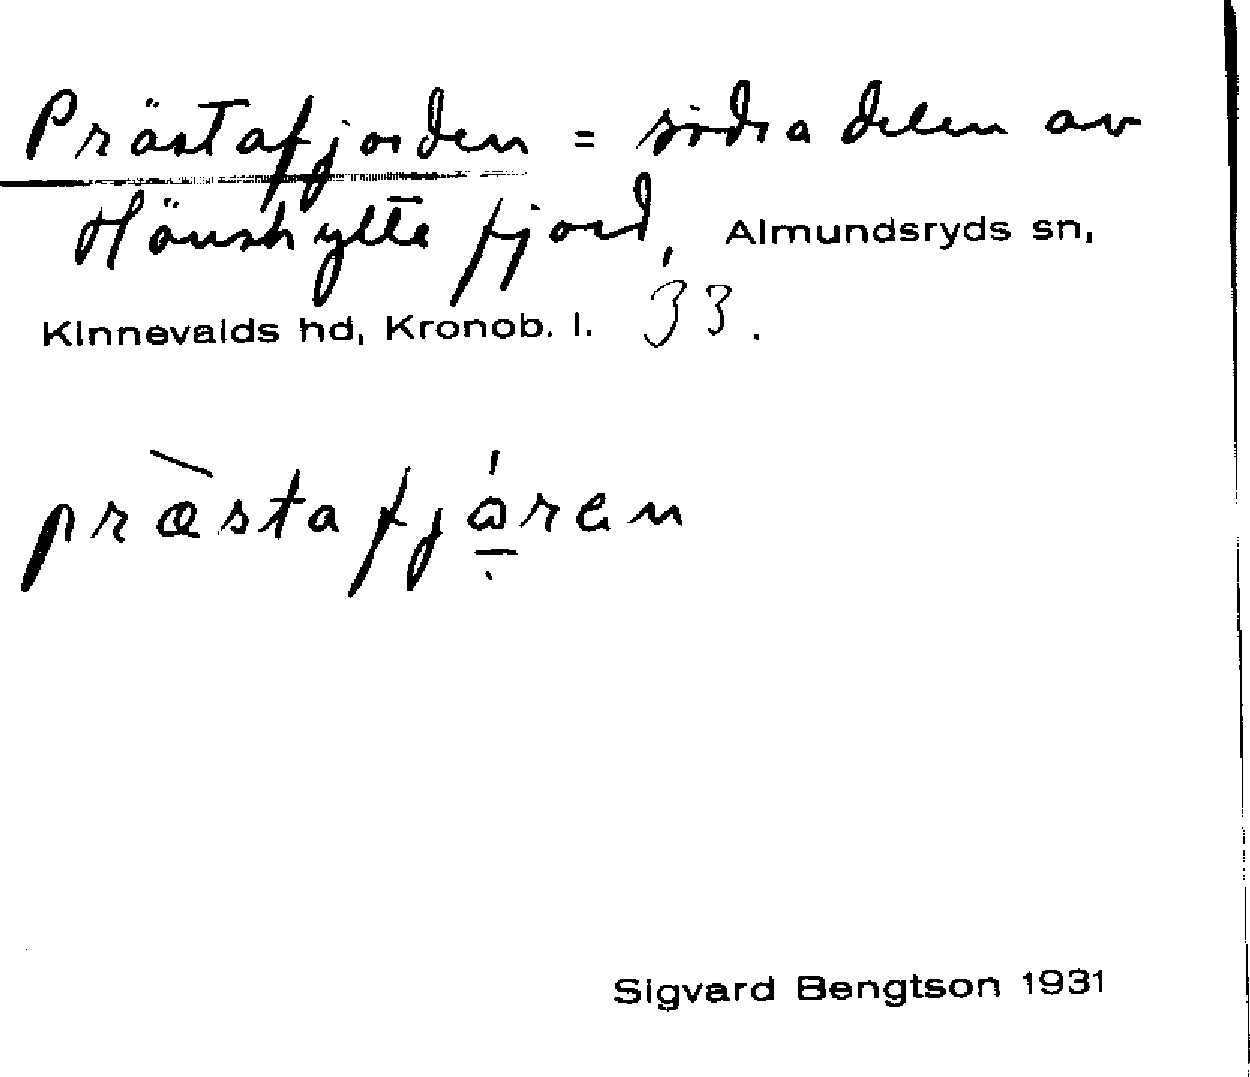 Prästafjorden = södra delen av
Hönshylte fjord, Almundsryds sn,
Kinnevalds hd, Kronob. l. 33.
præstafjåren
Sigvard Bengtson 1931